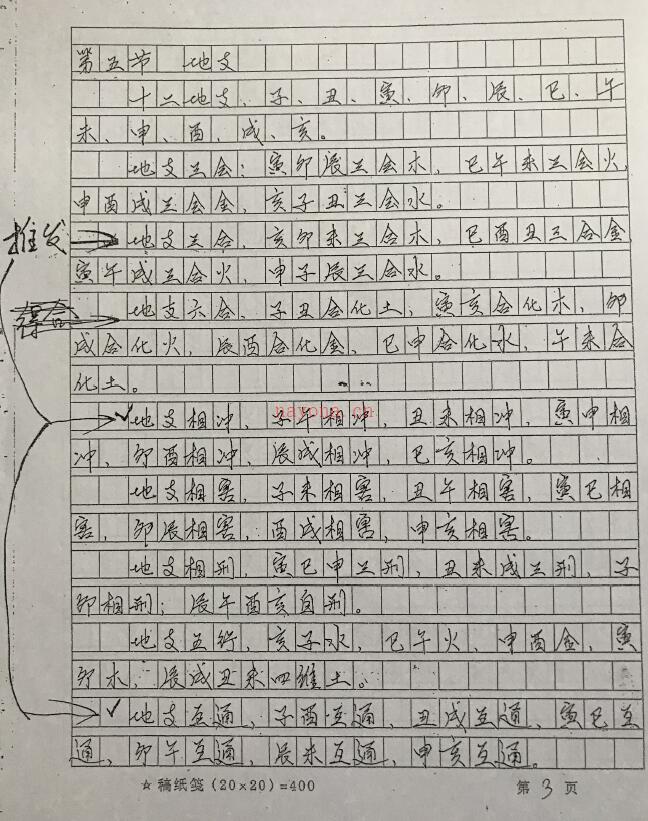 第五节 地支
十二地支、子、丑、寅、卯、辰、巳、午
未、申、酉、戌、亥。
地支三会：寅卯辰三会木，巳午未三会火，
申酉戌三会金，亥子丑三会水。
推发
地支三合，亥卯未三合木，巳酉丑三合金
寅午戌三合火，申子辰三合水。
地支六合，子丑合化土，寅亥合化木，卯
戌合化火，辰酉合化金，巳申合化水，午未合
化土。
nayona.cn
地支相冲，子午相冲，丑未相冲，寅申相
冲，卯酉相冲，辰戌相冲，巳亥相冲。
地支相害，子未相害，丑午相害，寅巳相
害，卯辰相害，酉戌相害，申亥相害。
地支相刑，寅巳申三刑，丑未戌三刑，子
卯相刑；辰午酉亥自刑。
地支五行，亥子水，巳午火，申酉金，寅
卯木，辰戌丑未四维土。
地支互通，子酉互通，丑戌互通，寅巳互
通，卯午互通，辰未互通，申亥互通。
☆稿纸笺(20×20)=400 第3页